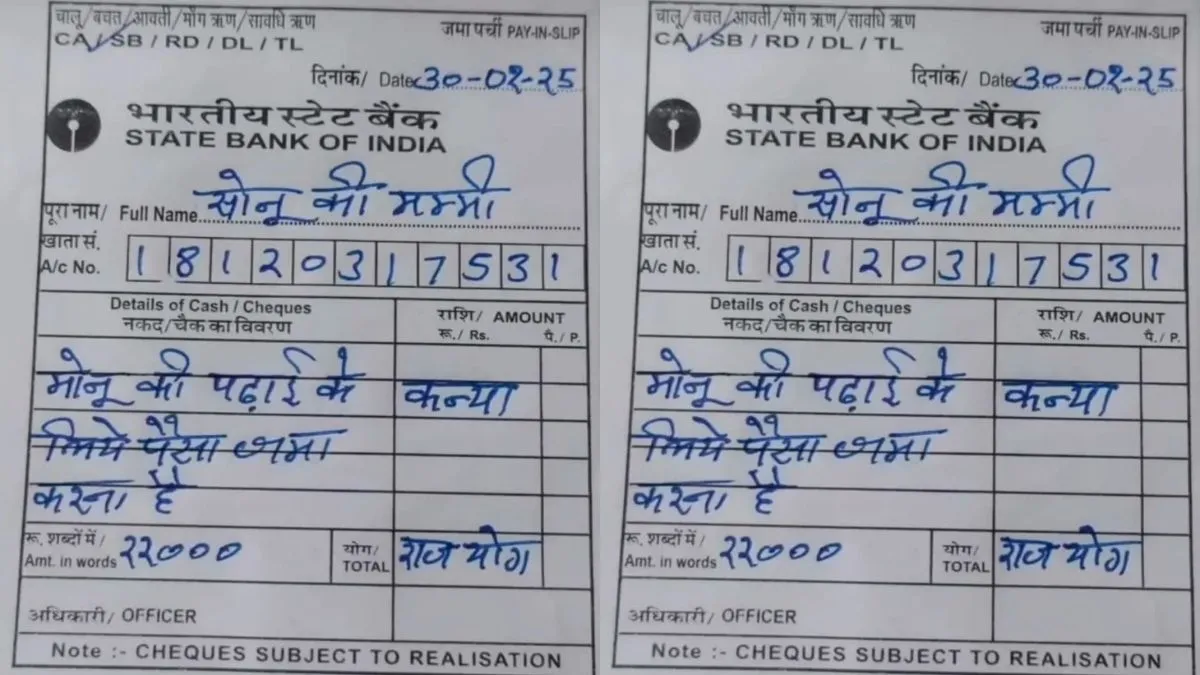 चालू/बचत/आवती/माँग ऋण/सावधि ऋण
CA/SB / RD / DL / TL
जमा पर्ची PAY-IN-SLIP
दिनांक/ Date
भारतीय स्टेट बैंक
STATE BANK OF INDIA
पूरा नाम/ Full Name सोनू की मम्मी
खाता सं.
A/c No. 1 8 1 2 0 3 1 7 5 3 1
Details of Cash / Cheques
नकद/चैक का विवरण
राशि/ AMOUNT
रू./ Rs. पै./ P.
मोनू की पढ़ाई के कन्या
लिये पैसा जमा
करना है
रू. शब्दों में/
Amt. in words २२०००
योग/
TOTAL राज योग
अधिकारी/ OFFICER
Note :- CHEQUES SUBJECT TO REALISATION
चालू/बचत/आवती/माँग ऋण/सावधि ऋण
CA/SB / RD / DL / TL
जमा पर्ची PAY-IN-SLIP
दिनांक/ Date
भारतीय स्टेट बैंक
STATE BANK OF INDIA
पूरा नाम/ Full Name सोनू की मम्मी
खाता सं.
A/c No. 1 8 1 2 0 3 1 7 5 3 1
Details of Cash / Cheques
नकद/चैक का विवरण
राशि/ AMOUNT
रू./ Rs. पै./ P.
मोनू की पढ़ाई के कन्या
लिये पैसा जमा
करना है
रू. शब्दों में/
Amt. in words २२०००
योग/
TOTAL राज योग
अधिकारी/ OFFICER
Note :- CHEQUES SUBJECT TO REALISATION